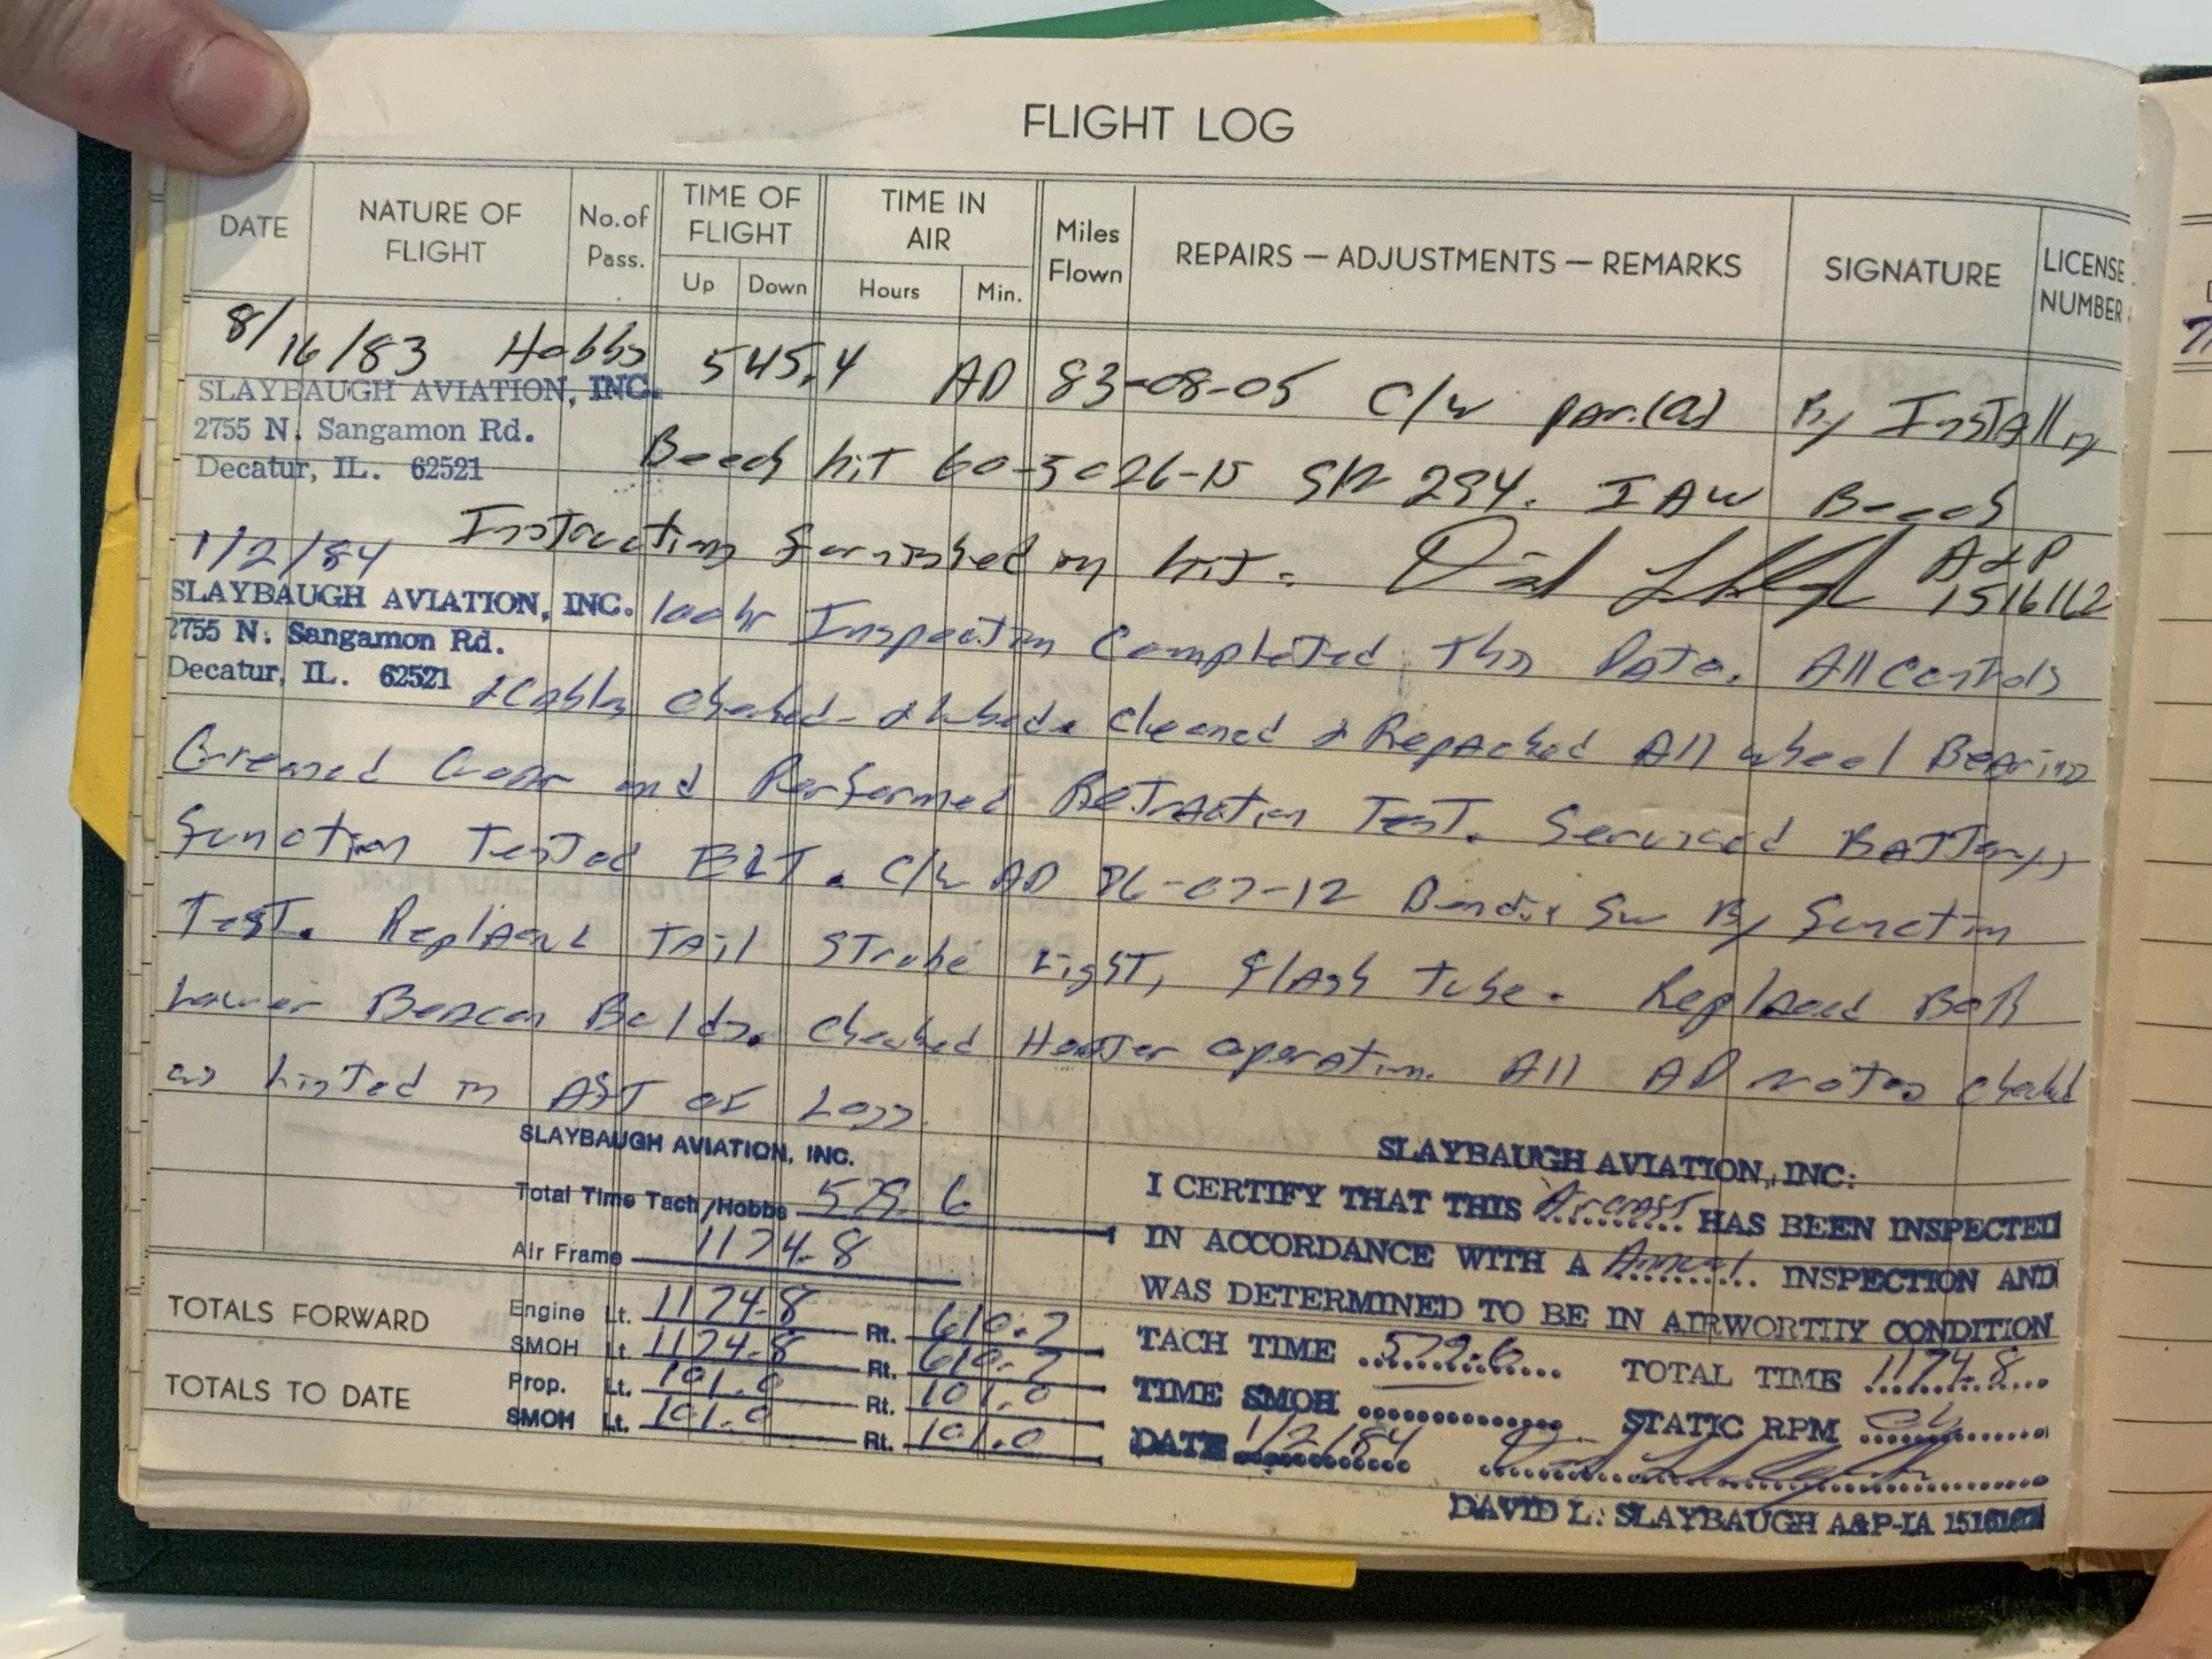 FLIGHT LOG
DATE
NATURE OF FLIGHT
No. of Pass.
TIME OF FLIGHT
Up
Down
TIME IN AIR
Hours
Min.
Miles Flown
REPAIRS — ADJUSTMENTS — REMARKS
SIGNATURE
LICENSE NUMBER
8/16/83 Hobbs 545.4 AD 83-08-05 C/W par.(a) By Installing
SLAYBAUGH AVIATION, INC.
2755 N. Sangamon Rd.
Decatur, IL. 62521
Beech kit 60-3026-1S S/N 294. IAW Beech
Instructions furnished in kit. A&P 1516162
1/2/84
SLAYBAUGH AVIATION, INC.
2755 N. Sangamon Rd.
Decatur, IL. 62521
100hr Inspection Completed This Date. All Controls
& Cables Checked & Lubed. Cleaned & Repacked All Wheel Bearings
Greased Gear and Performed Retraction Test. Serviced Battery,
Function Tested ELT. C/W AD 76-07-12 Bendix Sw By Function
Test. Replaced Tail Strobe Light, flash tube. Replaced Both
Lower Beacon Bulbs. Checked Heater operation. All AD notes checked
as Listed in of Logs.
SLAYBAUGH AVIATION, INC.
Total Time Tach/Hobbs 579.6
Air Frame 1174.8
Engine Lt. 1174.8 Rt. 610.7
SMOH Lt. 1174.8 Rt. 610.7
Prop. Lt. 101.0 Rt. 101.0
SMOH Lt. 101.0 Rt. 101.0
TOTALS FORWARD
TOTALS TO DATE
SLAYBAUGH AVIATION, INC.
I CERTIFY THAT THIS Aircraft HAS BEEN INSPECTED
IN ACCORDANCE WITH A Annual INSPECTION AND
WAS DETERMINED TO BE IN AIRWORTHY CONDITION
TACH TIME 579.6 TOTAL TIME 1174.8
TIME SMOH STATIC RPM ok
DATE 1/2/84
DAVID L. SLAYBAUGH A&P-IA 1516162